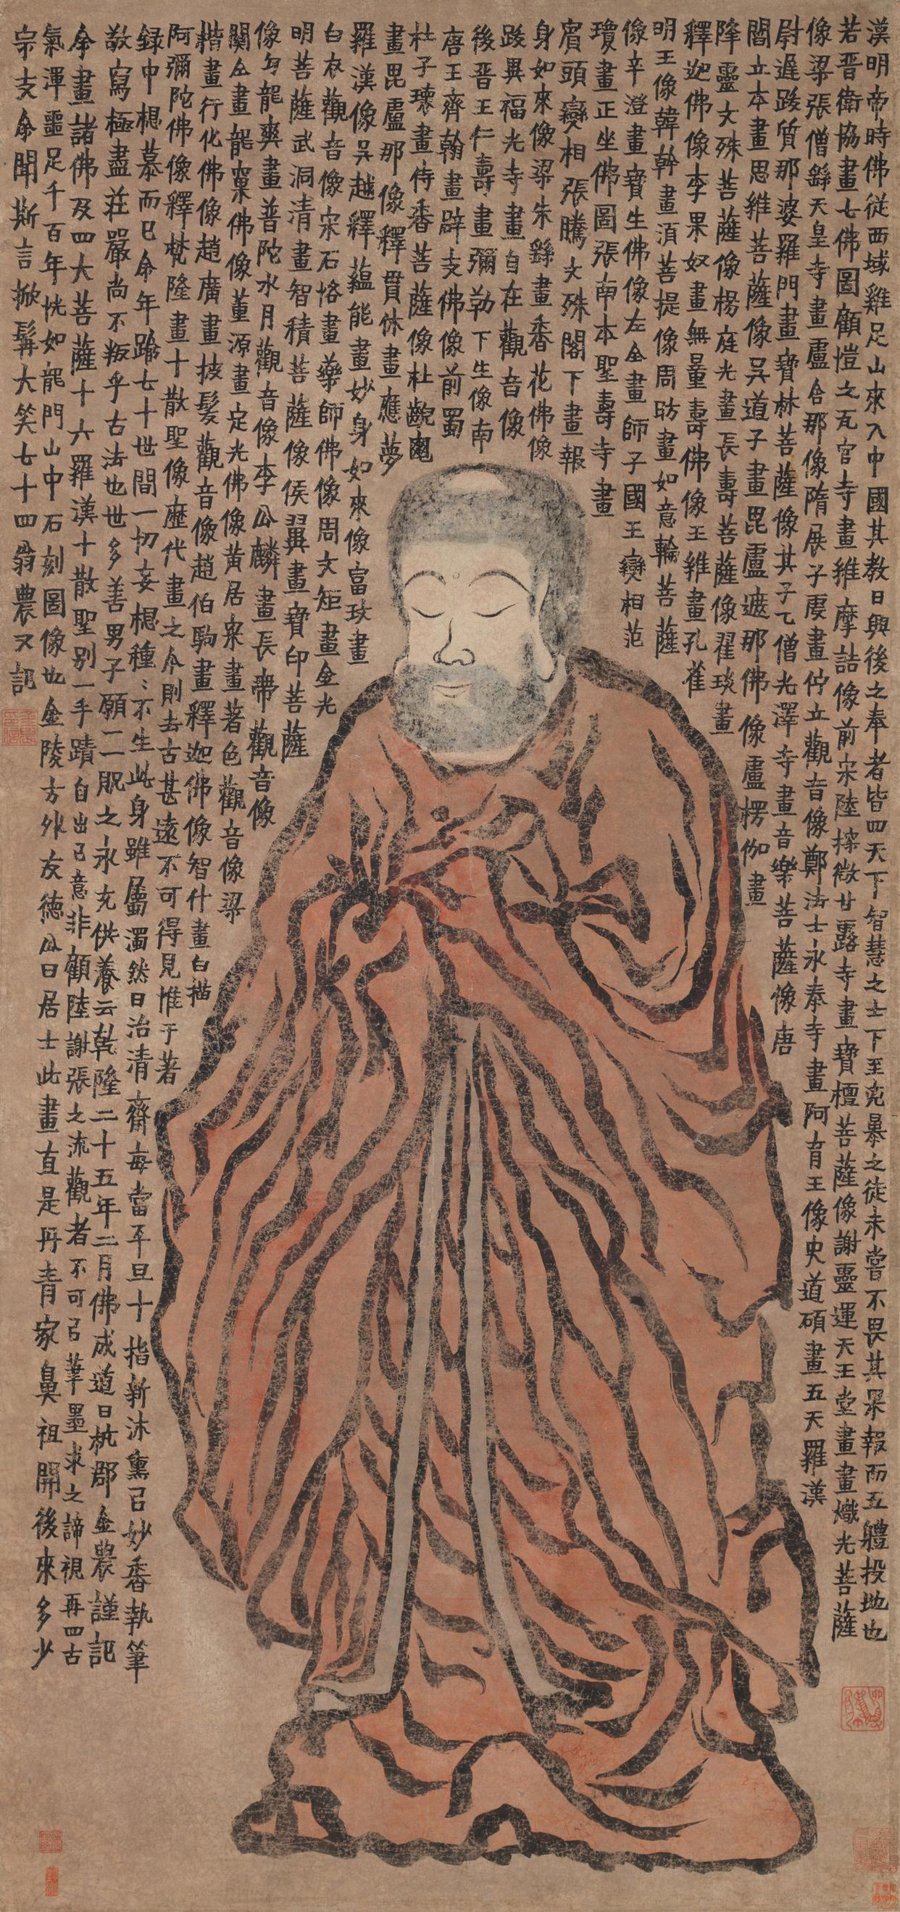 漢明帝時佛従西域雞足山來入中國其教日興後之奉者皆四天下智慧之士下至兇暴之徒未嘗不畏其果報而五軆投地也
若晉衛協畫七佛圖顧愷之瓦官寺畫維摩詰像前宋陸探微甘露寺畫寶檀菩薩像謝靈運天王堂畫畫熾光菩薩
像梁張僧繇天皇寺畫盧舍那像隋展子虔畫佇立觀音像鄭法士永泰寺畫阿育王像史道碩畫五天羅漢
尉遲跋質那婆羅門畫寶林菩薩像其子乙僧光澤寺畫音樂菩薩像唐
閻立本畫思維菩薩像吳道子畫毘盧遮那佛像盧楞伽畫
降靈文殊菩薩像楊庭光畫長壽菩薩像翟琰畫
釋迦佛像李果奴畫無量壽佛像王維畫孔雀
明王像韓幹畫湏菩提像周昉畫如意輪菩薩
像辛澄畫寶生佛像左全畫師子國王變相范
瓊畫正坐佛圖張南本聖壽寺畫
賓頭變相張騰文殊閣下畫報
身如來像梁朱繇畫香花佛像
跋異福光寺畫自在觀音像
後晉王仁壽畫彌勒下生像南
唐王齊翰畫辟支佛像前蜀
杜子瓌畫侍香菩薩像杜齯龜
畫毘盧那像釋貫休畫應夢
羅漢像吳越釋蘊能畫妙身如來像富玫畫
白衣觀音像宋石恪畫藥師佛像周文矩畫金光
明菩薩武洞清畫智積菩薩像侯翼畫寶印菩薩
像勾龍爽畫普陀水月觀音像李公麟畫長帶觀音像
關仝畫龍窠佛像董源畫定光佛像黃居寀畫著色觀音像梁
楷畫行化佛像趙廣畫披髮觀音像趙伯駒畫釋迦佛像智什畫白描
阿彌陀佛像釋梵隆畫十散聖像歷代畫之今則去古甚遠不可得見惟于著
録中想慕而已余年踰七十世間一切妄想種〻不生此身雖屬濁然日治清齋每當平旦十指新沐熏已妙香執筆
敬寫極盡莊嚴尚不叛乎古法也世多善男子願一一貺之永充供養云乾隆二十五年二月佛成道日杭郡金農謹記
余畫諸佛及四大菩薩十六羅漢十散聖別一手蹟自出己意非顧陸謝張之流觀者不可㠯筆墨求之諦視再四古
氣渾噩足千百年恍如龍門山中石刻圖像也金陵方外友德公曰居士此畫直是丹青家鼻祖開後來多少
宗支余聞斯言掀髯大笑七十四翁農又記